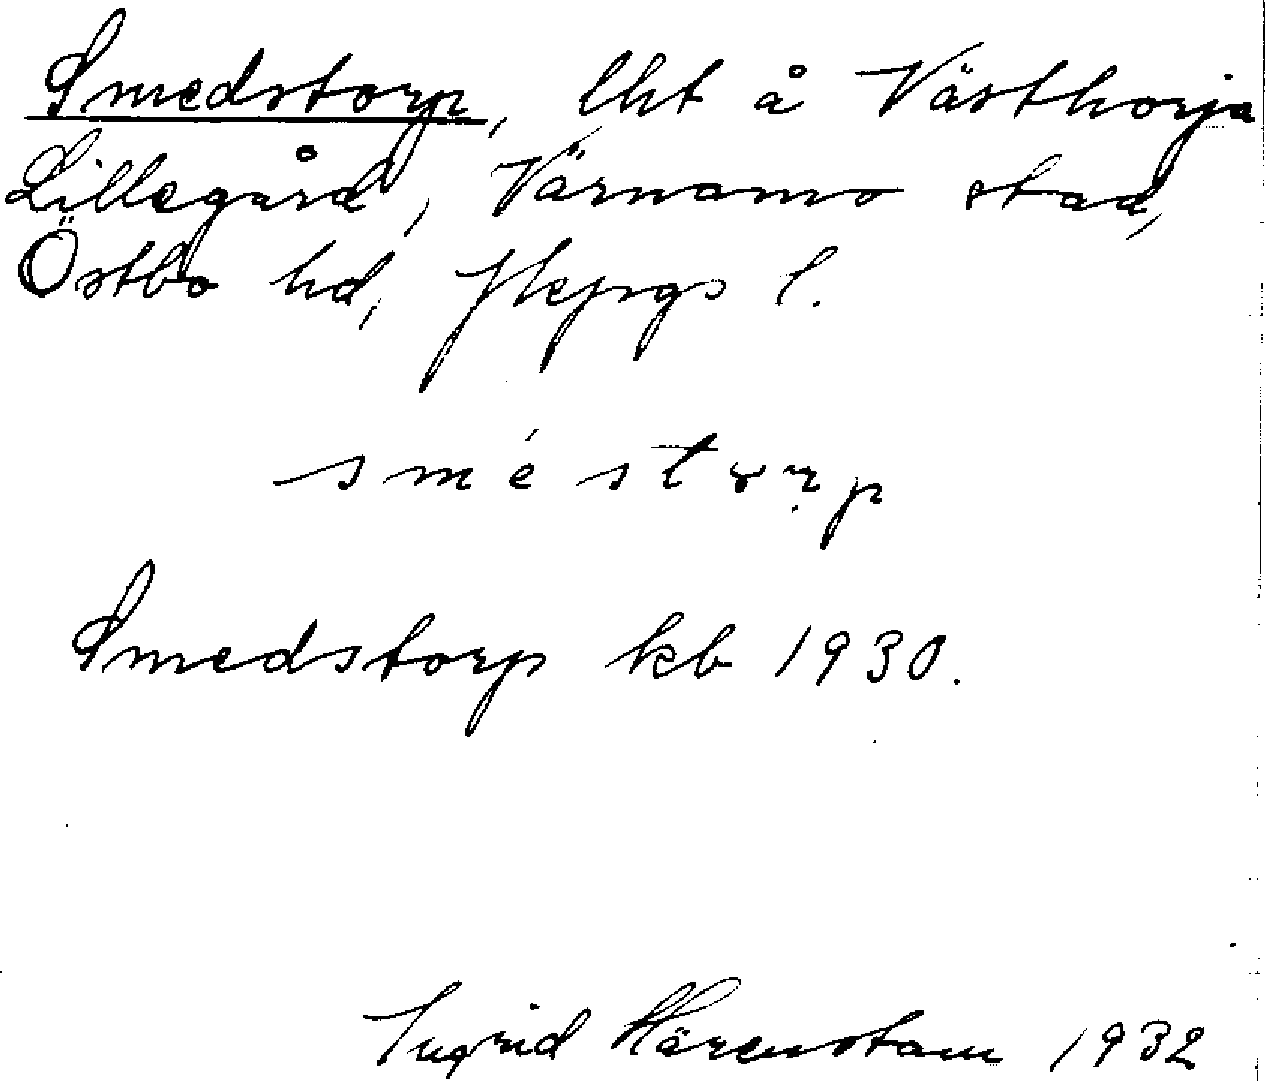 Smedstorp, lht å Västhorja
Lillegård, Värnamo stad,
Östbo hd, Jkpgs l.
sméstorp
Smedstorp kb 1930.
Ingrid Härenstam 1932